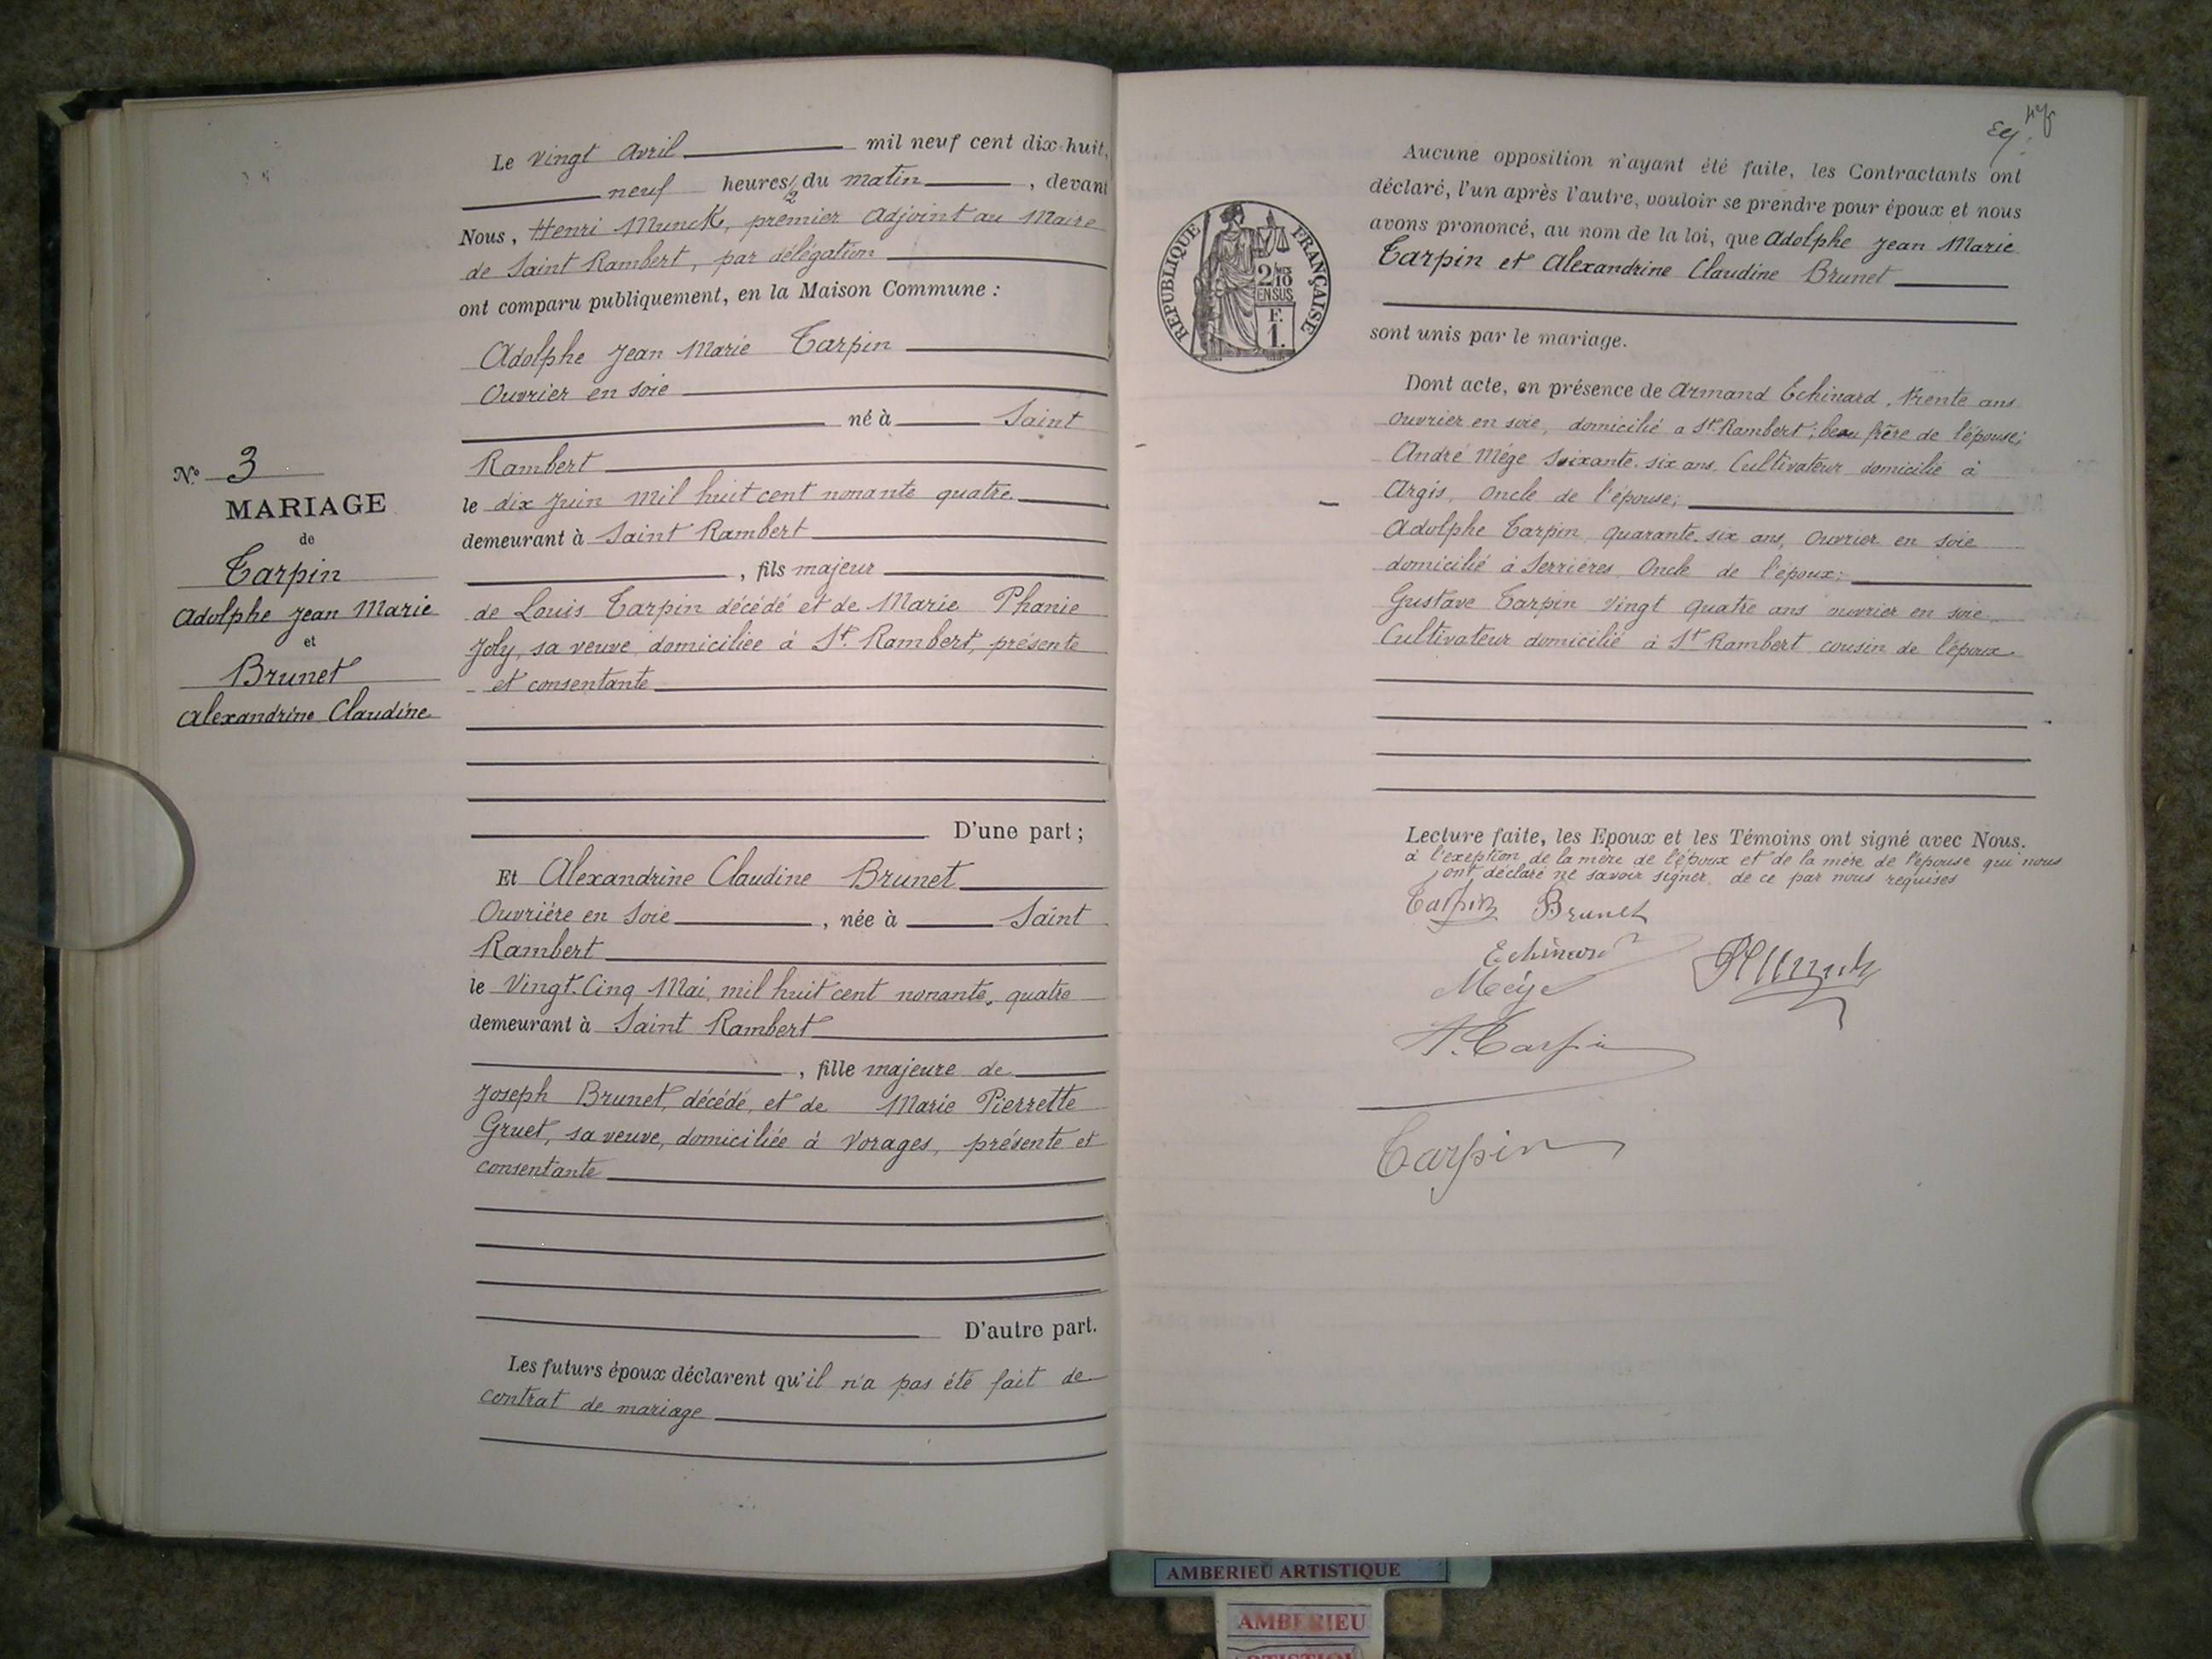 Le vingt Avril mil neuf cent dix-huit,
neuf heures 1/2 du matin, devant
Nous, Henri Munck, premier Adjoint au Maire
de Saint Rambert, par délégation
ont comparu publiquement, en la Maison Commune :
Adolphe Jean Marie Tarpin
Ouvrier en soie
né à Saint
Rambert
le dix Juin mil huit cent nonante quatre
demeurant à Saint Rambert
, fils majeur
de Louis Tarpin décédé et de Marie Phanie
Joly, sa veuve, domiciliée à St. Rambert, présente
et consentante
D'une part ;
Et Alexandrine Claudine Brunet
Ouvrière en Soie, née à Saint
Rambert
le Vingt-Cinq Mai, mil huit cent nonante quatre
demeurant à Saint Rambert
, fille majeure de
Joseph Brunet, décédé, et de Marie Pierrette
Gruet, sa veuve, domiciliée à Vorages, présente et
consentante
D'autre part.
Les futurs époux déclarent qu'il n'a pas été fait de
contrat de mariage
N° 3
MARIAGE
de
Tarpin
Adolphe Jean Marie
et
Brunet
Alexandrine Claudine
REPUBLIQUE FRANÇAISE
2/10
EN SUS
F.
1.
Aucune opposition n'ayant été faite, les Contractants ont
déclaré, l'un après l'autre, vouloir se prendre pour époux et nous
avons prononcé, au nom de la loi, que Adolphe Jean Marie
Tarpin et Alexandrine Claudine Brunet
sont unis par le mariage.
Dont acte, en présence de Armand Echinard, trente ans
ouvrier en soie, domicilié a St. Rambert ; beau frère de l'épouse ;
André Mége Soixante-six ans Cultivateur domicilié à
Argis, Oncle de l'épouse ;
Adolphe Tarpin, quarante-six ans, Ouvrier en soie
domicilié à Serrières, Oncle de l'époux ;
Gustave Tarpin Vingt quatre ans ouvrier en soie
Cultivateur domicilié à St Rambert cousin de l'époux
Lecture faite, les Epoux et les Témoins ont signé avec Nous.
à l'exeption de la mère de l'époux et de la mère de l'épouse qui nous
ont déclaré ne savoir signer de ce par nous requises
Tarpin Brunet
Echinard
Mége
HMunck
A. Tarpin
Tarpin
AMBERIEU ARTISTIQUE
AMBERIEU
ARTISTIQU